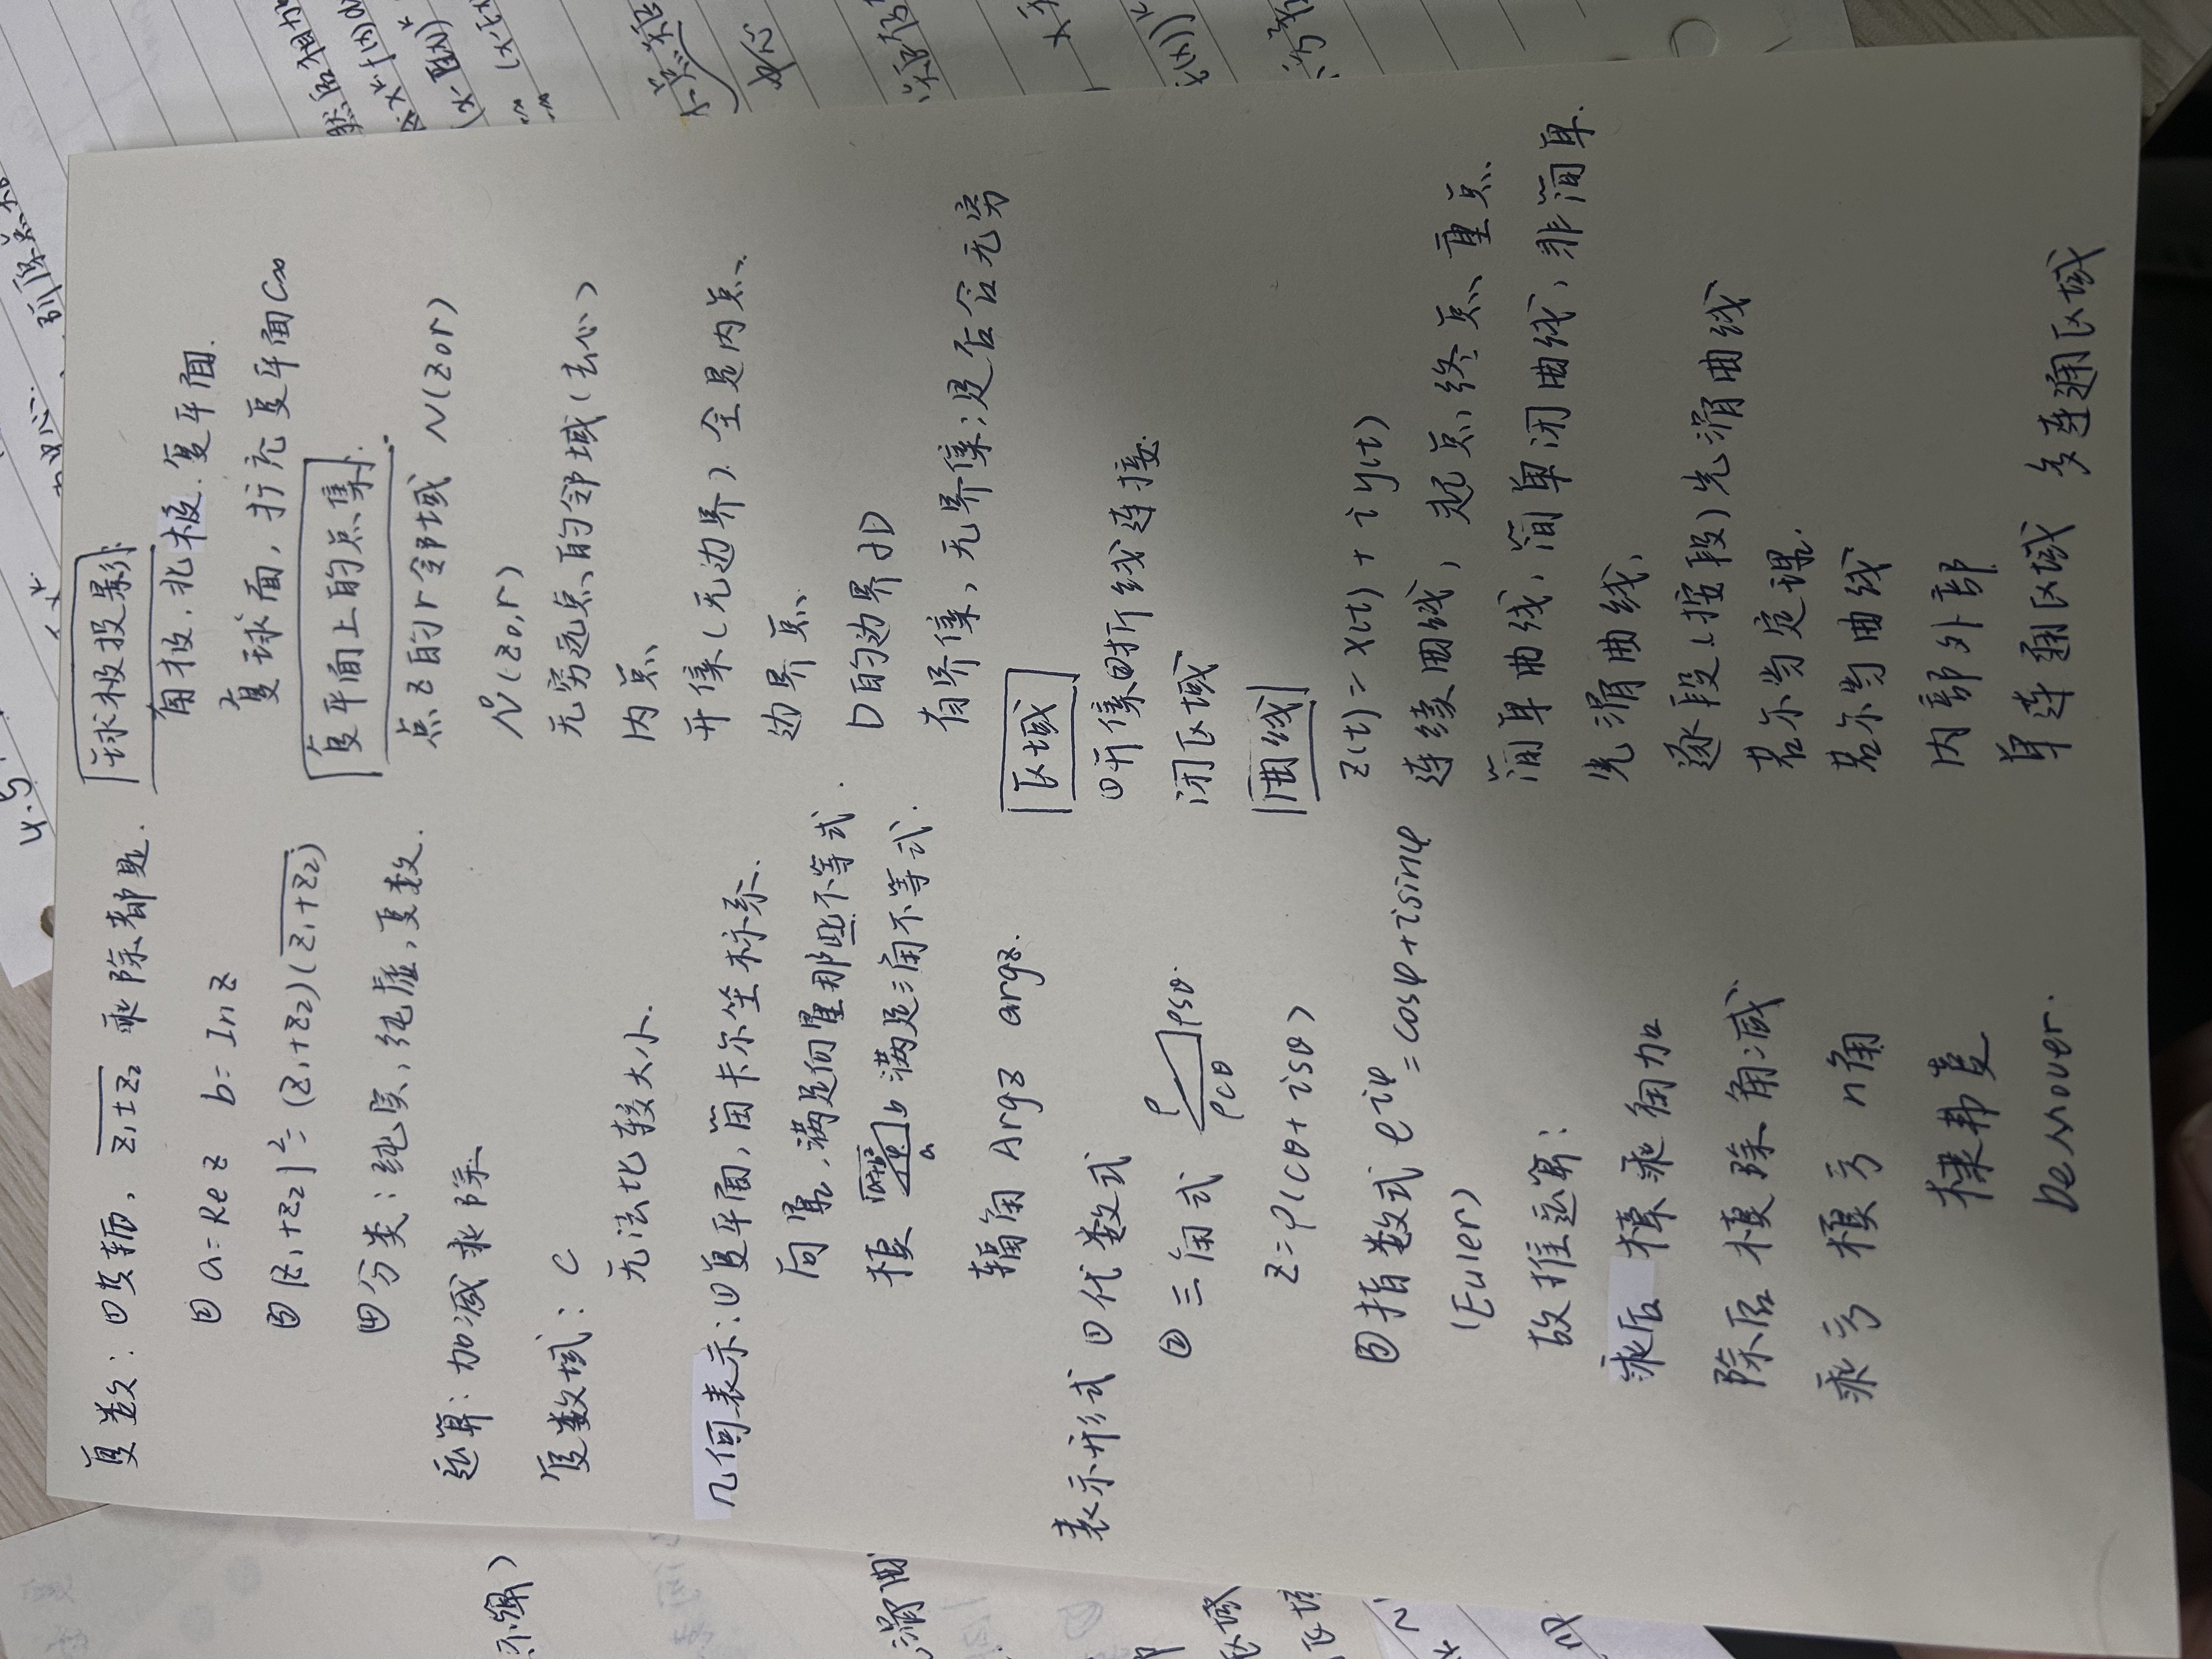 复数：①共轭，\overline{z₁±z₂} 乘除都是.
② a=Re z  b=In z
③ |z₁+z₂|²=(z₁+z₂)(\overline{z₁+z₂})
④分类：纯实，纯虚，复数.
运算：加减乘除
复数域：C
无法比较大小.
几何表示：①复平面，笛卡尔坐标系.
向量，满足向量那些不等式.
模 √a²+b² a b 满足三角不等式.
辐角 Argz argz.
表示形式 ①代数式
② 三角式 ρ ρsθ. ρcθ
z=ρ(cθ+isθ)
③指数式 e^{iφ}=cosφ+isinφ
(Euler)
故推运算：
乘后 模乘角加
除后 模除角减
乘方 模方 n角
棣弗
De Mover.
球极投影
南极，北极.复平面.
复球面，扩充复平面C∞
复平面上的点集.
点z的r邻域 N(z₀r)
N°(z₀,r)
无穷远点的邻域(去心)
内点
开集(无边界).全是内点.
边界点
D的边界∂D
有界集，无界集；是否含无穷
区域
①开集②折线连接.
闭区域
曲线
z(t)=x(t)+iy(t)
连续曲线，起点，终点，重点
简单曲线，简单闭曲线，非简单.
光滑曲线，
逐段(按段)光滑曲线
若尔当定理.
若尔当曲线
内部外部
单连通区域 多连通区域
4.5
然后相加
(x-E(x))ᵏ
中心
区域